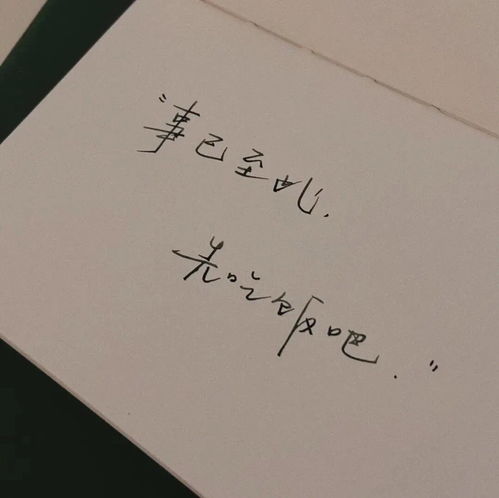 "事已至此.
先吃饭吧."